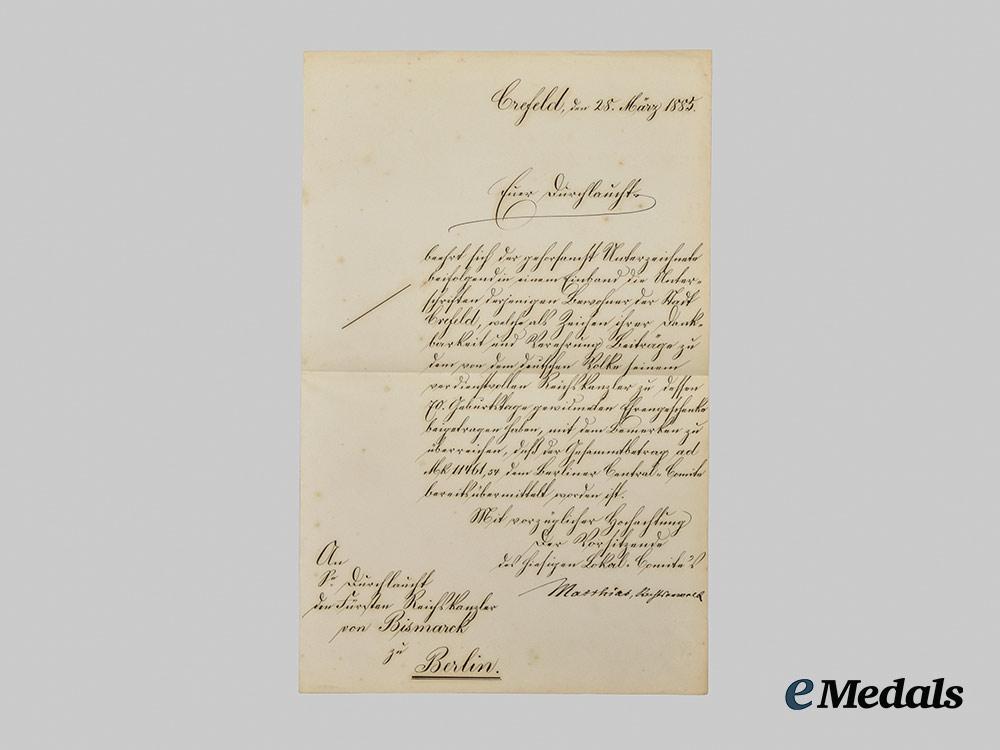 Crefeld, den 28. März 1885.
Euer Durchlaucht
beehrt sich der gehorsamst Unterzeichnete
beifolgend in einem Einband die Unter-
schriften derjenigen Bewohner der Stadt
Crefeld, welche als Zeichen ihrer Dank-
barkeit und Verehrung Beiträge zu
dem von dem deutschen Volke seinem
verdienstvollen Reichskanzler zu dessen
70. Geburtstage gewidmeten Ehrengeschenke
beigetragen haben, mit dem Bemerken zu
überreichen, daß der Gesammtbetrag ad
Mk 11461,54 dem Berliner Central-Comite
bereits übermittelt worden ist.
Mit vorzüglicher Hochachtung
Der Vorsitzende
des hiesigen Lokal-Comite's
Matthias, Rechtsanwalt
An
Sr. Durchlaucht
den Fürsten Reichskanzler
von Bismarck
zu
Berlin.
eMedals